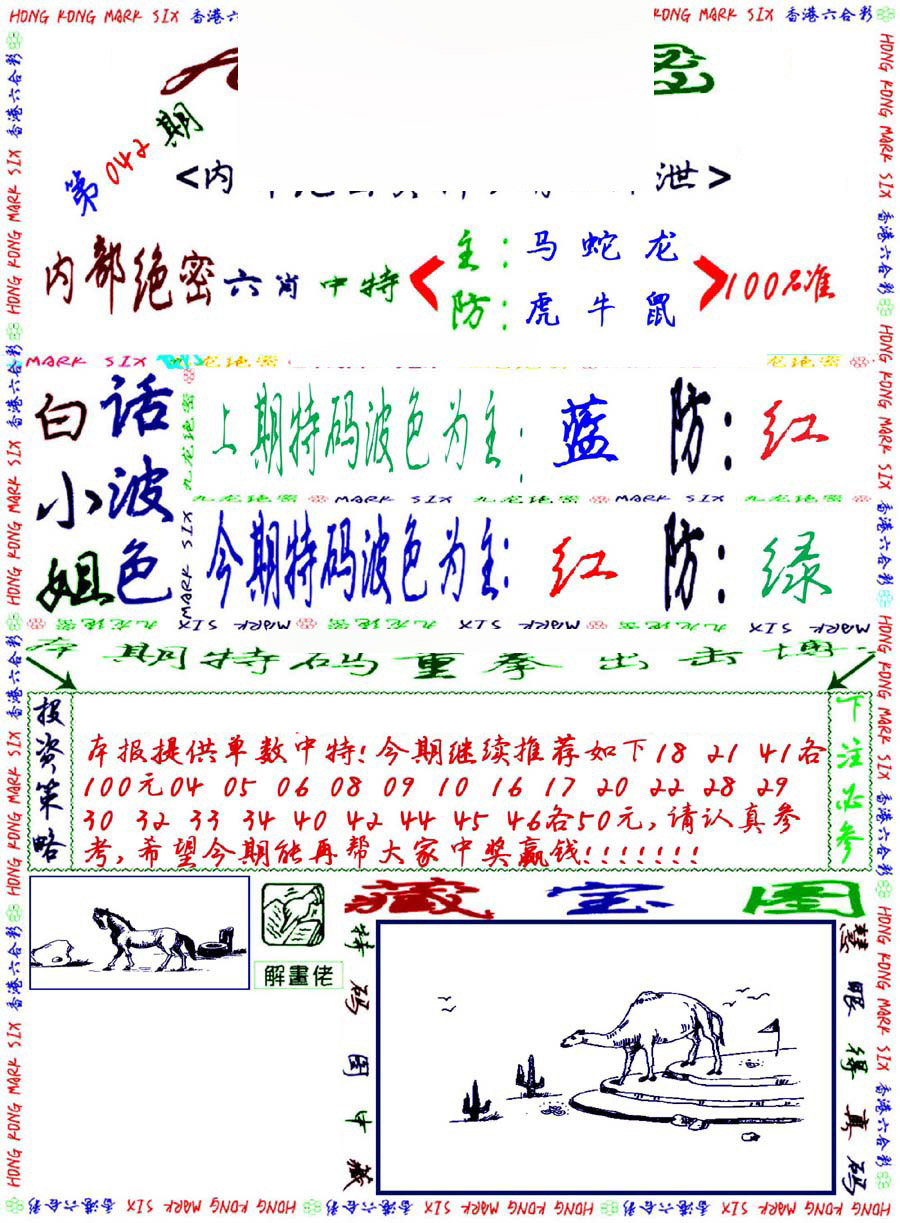 HONG KONG MARK SIX 香港六合彩
第042期
<内 泄>
内部绝密六肖中特
主：马 蛇 龙
防：虎 牛 鼠
100%准
MARK SIX 九龙绝密
白话
小波
姐色
上期特码波色为主：蓝 防：红
九龙绝密 MARK SIX 九龙绝密 MARK SIX 九龙绝密
今期特码波色为主：红 防：绿
九龙绝密 MARK SIX 九龙绝密 MARK SIX
本期特码重拳出击
投资策略
本报提供单数中特!今期继续推荐如下18 21 41各
100元04 05 06 08 09 10 16 17 20 22 28 29
30 32 33 34 40 42 44 45 46各50元,请认真参
考,希望今期能再帮大家中奖赢钱!!!!!!!
下注必参
解畫佬
藏宝图
特码图中藏
慧眼得真码
HONG KONG MARK SIX 香港六合彩